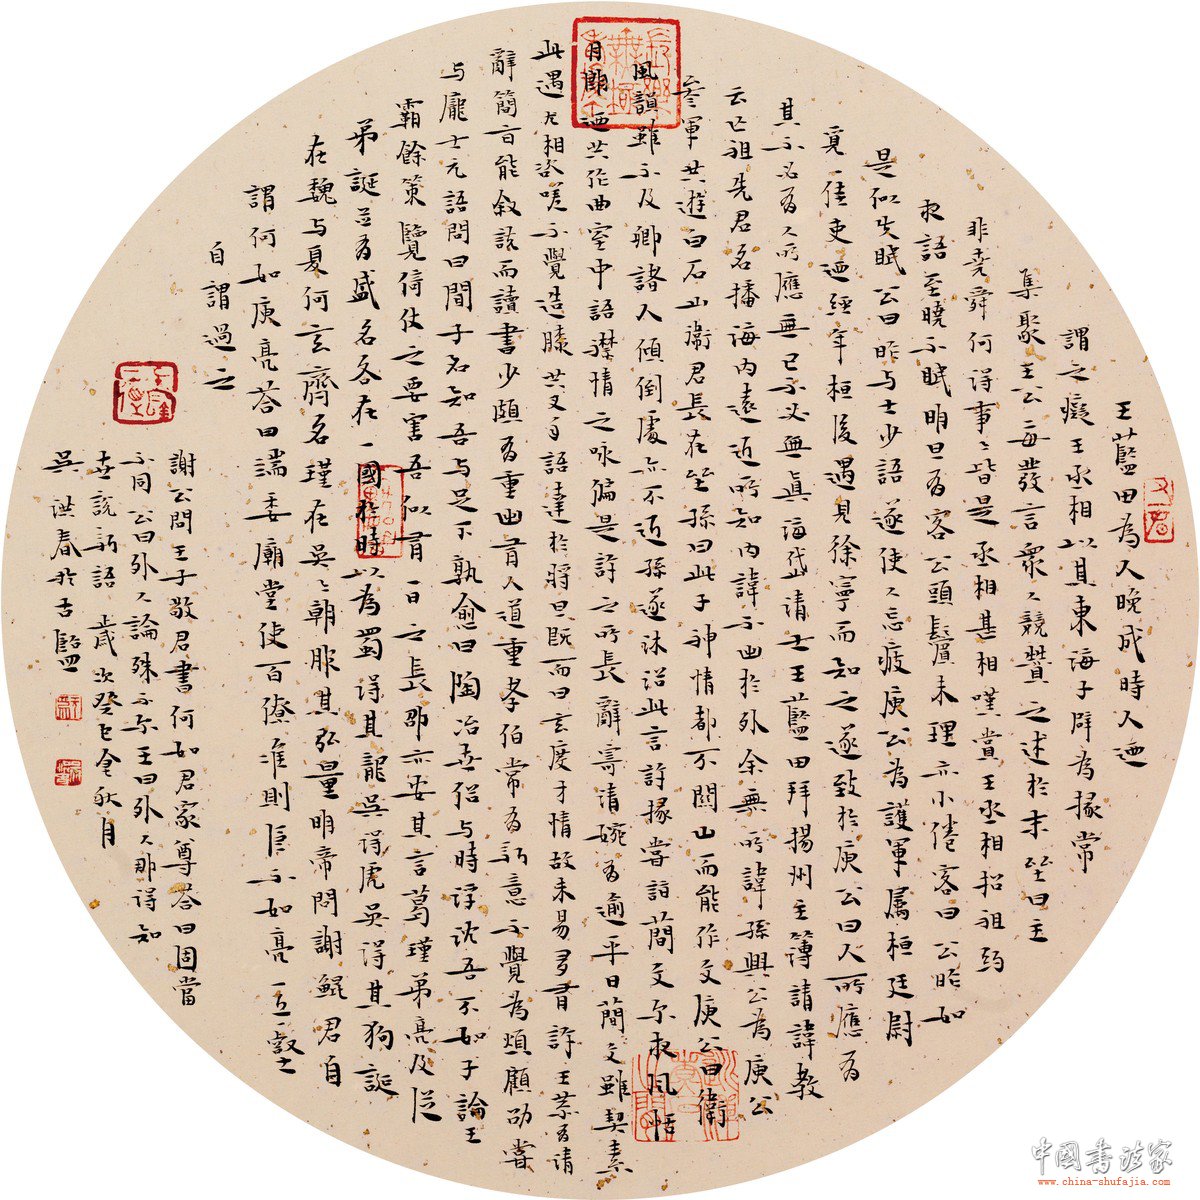 王藍田為人晚成時人迺
謂之癡王丞相以其東海子辟為掾常
集聚王公每發言衆人競贊之述於末坐曰主
非堯舜何得事事皆是丞相甚相嘆賞王丞相招祖約
夜語至曉不眠明旦有客公頭鬢未理亦小倦客曰公昨如
是似失眠公曰昨与士少語遂使人忘疲庾公為護軍属桓廷尉
覓一佳吏迺經年桓後遇見徐寧而知之遂致於庾公曰人所應有
其不必有人所應無己不必無真海岱清士王藍田拜揚州主簿請諱教
云亡祖先君名播海内遠近所知内諱不出於外余無所諱孫興公為庾公
参軍共遊白石山衛君長在坐孫曰此子神情都不關山而能作文庾公曰衛
風韻雖不及卿諸人傾倒處亦不近孫遂沐浴此言許掾嘗詣簡文尔夜風恬
月朗迺共作曲室中語襟情之咏偏是許之所長辭寄清婉有逾平日簡文雖契素
此遇尤相咨嗟不覺造膝共叉手語達於將旦既而曰玄度才情故未易多有許王恭有清
辭簡旨能叙說而讀書少頗有重出有人道重孝伯常有新意不覺為煩顧劭嘗
与龐士元語問曰聞子名知吾与足下孰愈曰陶冶世俗与時浮沈吾不如子論王
霸餘策覽倚仗之要害吾似有一日之長劭亦安其言葛瑾弟亮及從
弟誕並有盛名各在一國於時以為蜀得其龍吳得虎吳得其狗誕
在魏与夏何玄齊名瑾在吳吳朝服其弘量明帝問謝鯤君自
謂何如庾亮答曰端委廟堂使百僚准則臣不如亮一丘一壑
自謂過之
謝公問王子敬君書何如君家尊答曰固當
不同公曰外人論殊不尔王曰外人那得知
世說新語 歲次癸巳金秋月
吳洪春於古監
中國書法家
www.china-shufajia.com